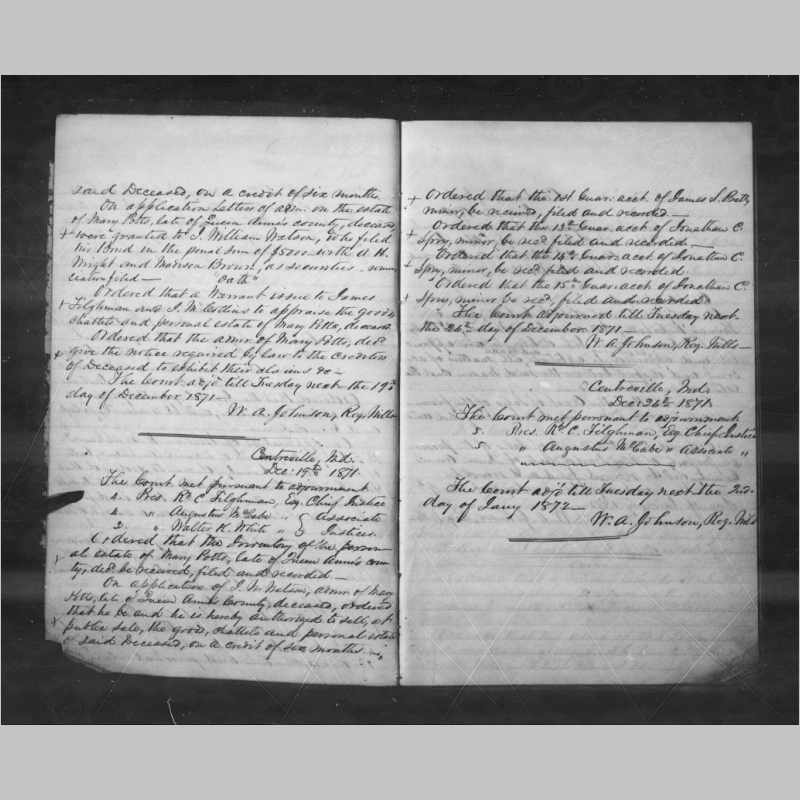 said Deceased, on a credit of six months
On application Letters of adm. on the estate
of Mary Potts, late of Queen Anne's county, deceased,
were granted to J. William Watson, who filed
his Bond in the penal sum of $5000 with A. H.
Wright and Manson Brown, as securities
filed — Oath
Ordered that a Warrant issue to James
Tilghman and J. W. Collins to appraise the goods
chattels and personal estate of Mary Potts, deceased
Ordered that the admr. of Mary Potts, decd.
give the notice required by law to the creditors
of Deceased to exhibit their claims &c —
The Court adj'd till Tuesday next the 19th
day of December 1871 —
W. A. Johnson, Reg. Wills
Centreville, Md.
Dec: 19th 1871
The Court met pursuant to adjournment
4. Pres. R. C. Tilghman, Esq. Chief Justice
4. " Augustus McCabe " } Associate
2. " Walter K. White " } Justices.
Ordered that the Inventory of the person
al estate of Mary Potts, late of Queen Anne's coun
ty, decd. be received, filed and recorded —
On application of J. W. Watson, admr. of Mary
Potts, late of Queen Anne's County, deceased, ordered
that he be and he is hereby authorized to sell, at
public sale, the goods, chattels and personal estate
of said Deceased, on a credit of six months —
Ordered that the 1st Guar: acct. of James S. Betts
minor, be received, filed and recorded —
Ordered that the 13th Guar. acct. of Jonathan C.
Spry, minor, be recd. filed and recorded —
Ordered that the 14th Guar: acct. of Jonathan C.
Spry, minor, be recd. filed and recorded.
Ordered that the 15th Guar: acct. of Jonathan C.
Spry, minor be recd. filed and recorded
The Court adjourned till Tuesday next
the 26th day of December 1871 —
W. A. Johnson, Reg. Wills —
Centreville, Md.
Dec: 26th 1871.
The Court met pursuant to adjournment
5. Pres. R. C. Tilghman, Esq. Chief Justice
5 " Augustus McCabe " Associate "
The Court adj'd till Tuesday next the 2nd.
day of Jany 1872 —
W. A. Johnson, Reg. Wills